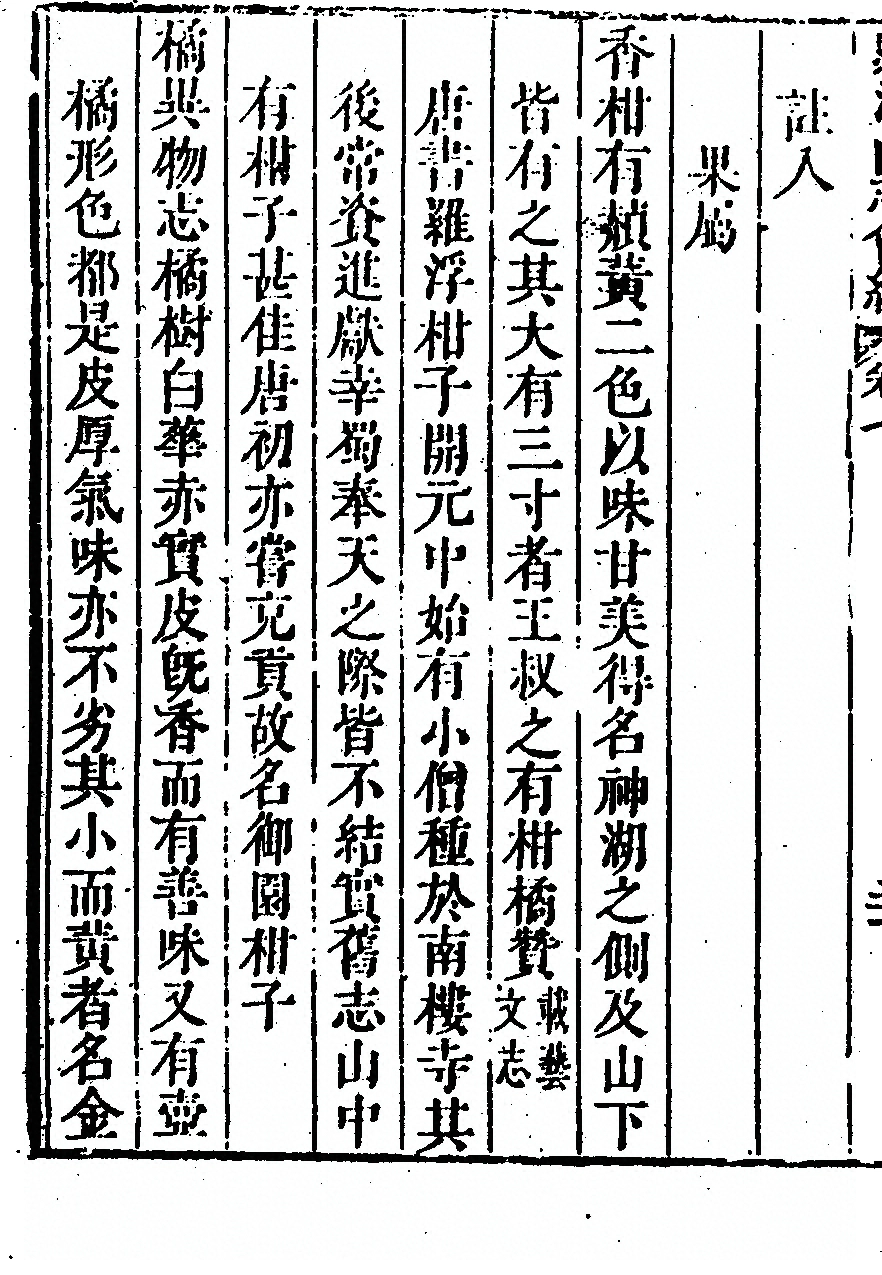 註入
果屬
香柑有頳黃二色以味甘美得名神湖之側及山下
皆有之其大有三寸者王叔之有柑橘贊載藝文志
唐書羅浮柑子開元中始有小僧種於南樓寺其
後常資進獻幸蜀奉天之際皆不結實舊志山中
有柑子甚佳唐初亦嘗充貢故名御園柑子
橘異物志橘樹白華赤實皮旣香而有善味又有壺
橘形色都是皮厚氣味亦不劣其小而黃者名金